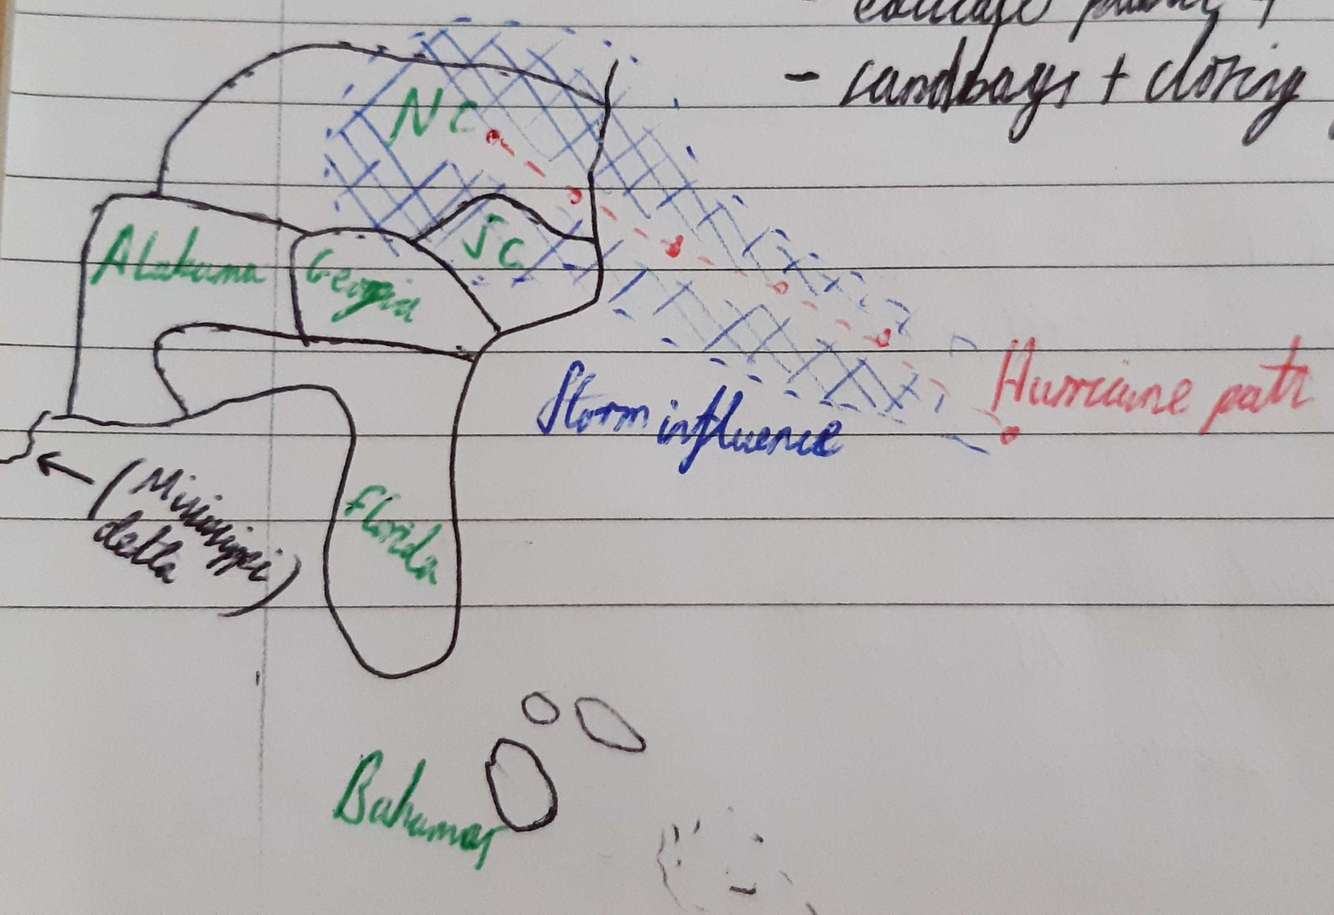 - sandbags + closing
NC
SC
Alabama
Georgia
Hurricane path
Storm influence
(Mississippi
delta)
Florida
Bahamas